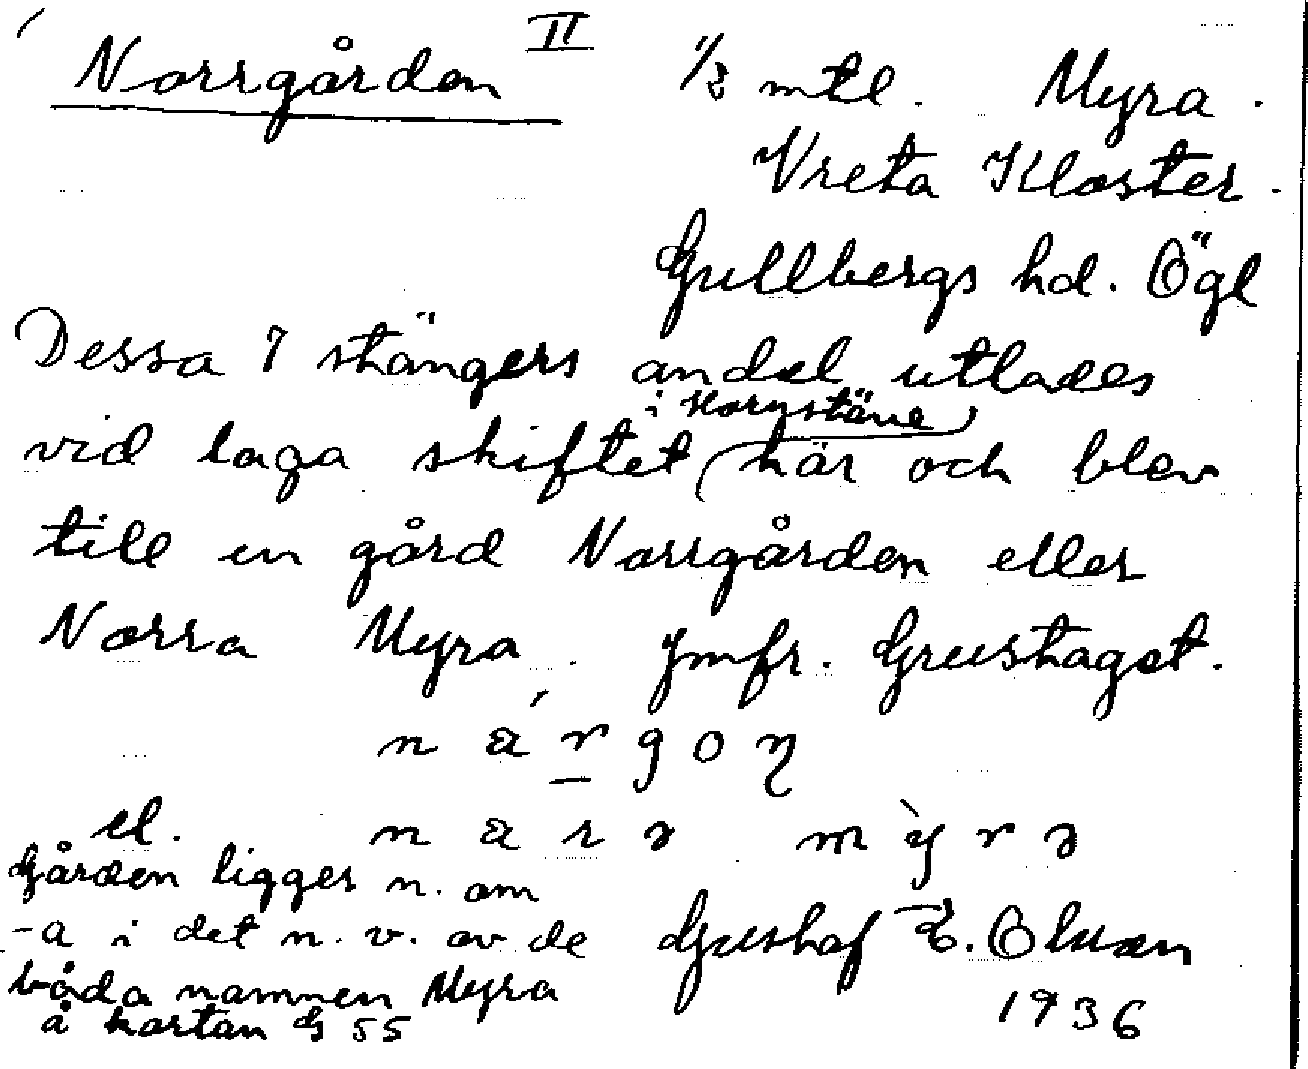 Norrgården II 1/3 mtl. Myra.
Vreta Kloster.
Gullbergs hd. Ögl
Dessa 7 stängers andel utlades
i Kornstäve
vid laga skiftet (här och blev
till en gård Norrgården eller
Norra Myra. Jmfr. Grustaget.
el.
Gården ligger n. om
-a i det n. v. av de
båda namnen Myra
å kartan G 55
Gustaf E.
1936